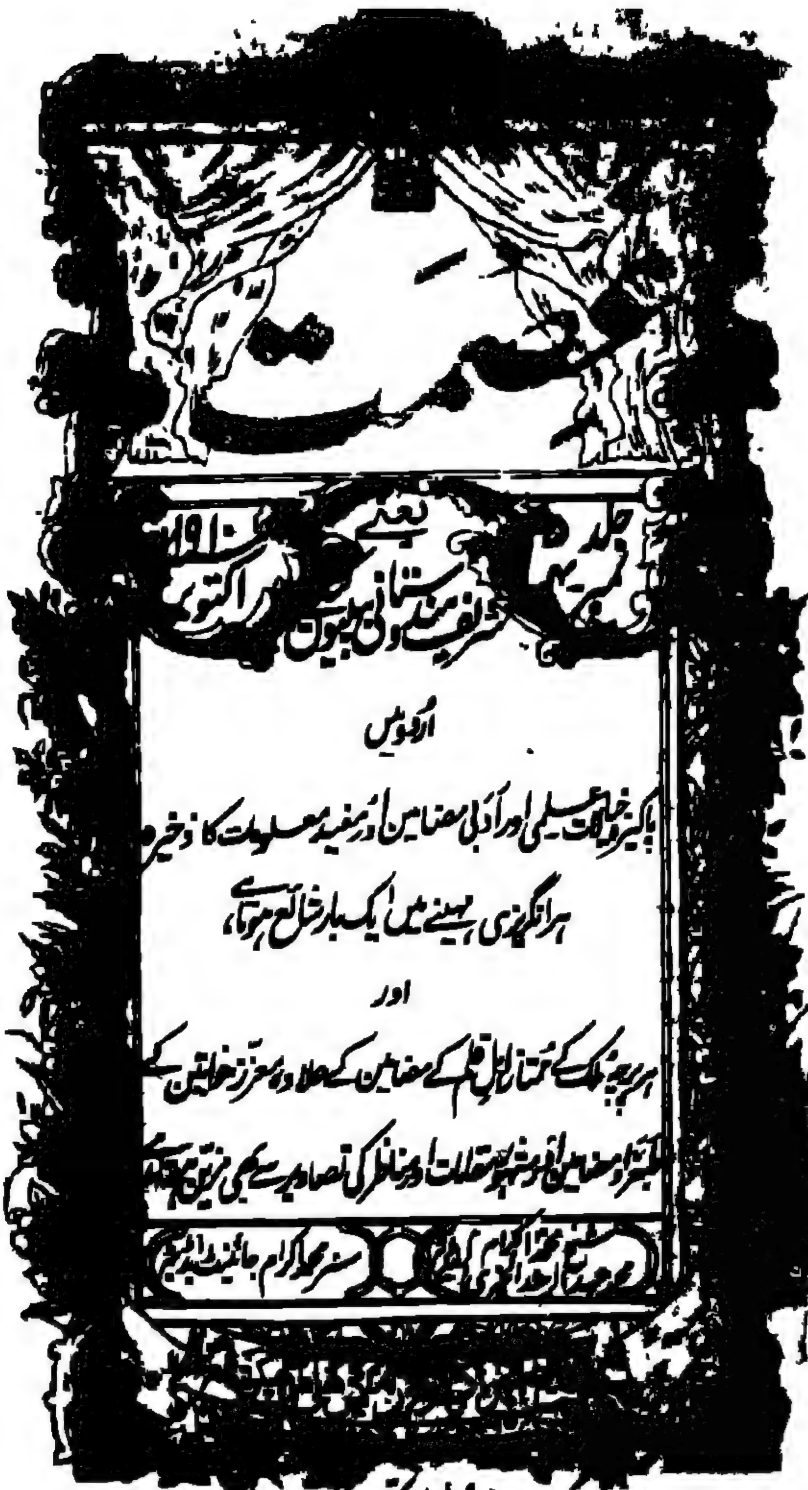 عصمت
جلد ۵
نمبر ۴
یعنے
۱۹۱۰
اکتوبر
شریف ہندوستانی بیبیوں
اردو میں
پاکیزہ خیالات علمی اور ادبی مضامین اور مفید معلومات کا ذخیرہ
ہر انگریزی مہینے میں ایک بار شائع ہوتا ہے،
اور
ہر پرچہ ملک کے ممتاز اہل قلم کے مضامین کے علاوہ معزز خواتین کے
مضامین اور مشہور مقامات اور مناظر کی تصاویر سے بھی مزین ہوتا ہے
شیخ محمد اکرام ایڈیٹر
محمد عبدالراشد الخیری
مسز محمد اکرام جائنٹ ایڈیٹر